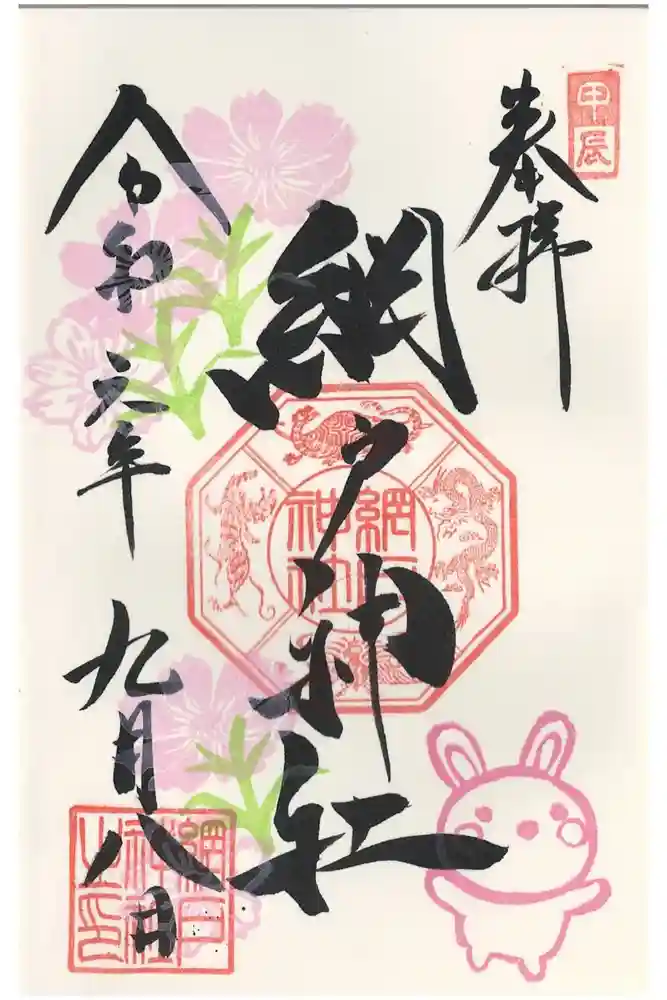 甲辰
奉拝
網戸神社
網戸
神社
令和元年九月八日
網戸
神社
之印